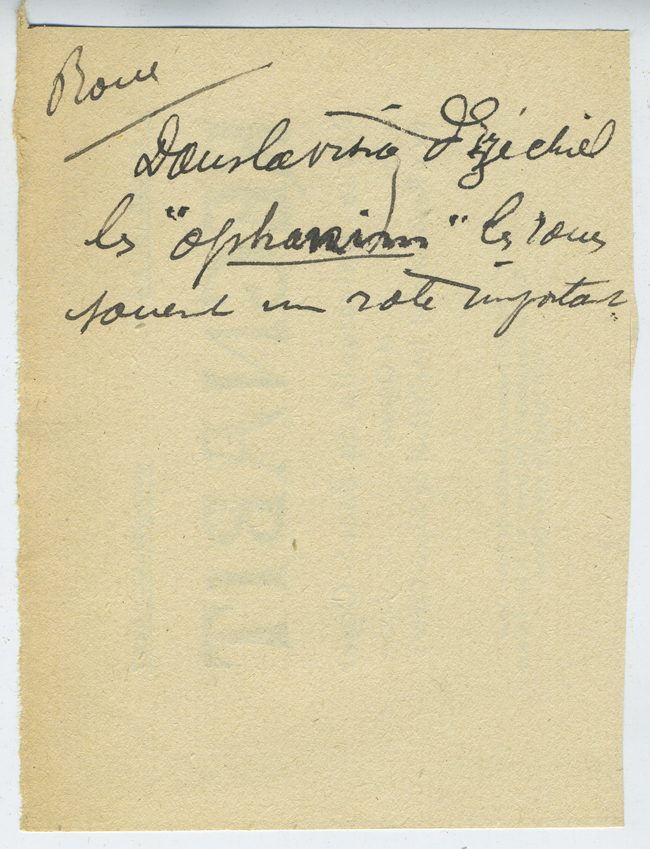 Roue
Dans la vision d'Ezéchiel
les "ophanim" les roues
jouent un role important